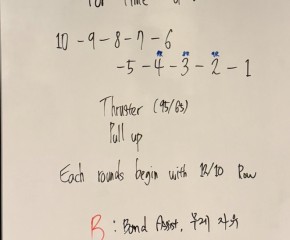 For Time
10 - 9 - 8 - 7 - 6
- 5 - 4 - 3 - 2 - 1
Thruster (95/65)
Pull up
Each rounds begin with 12/10 Row
: Band Assist, 무게